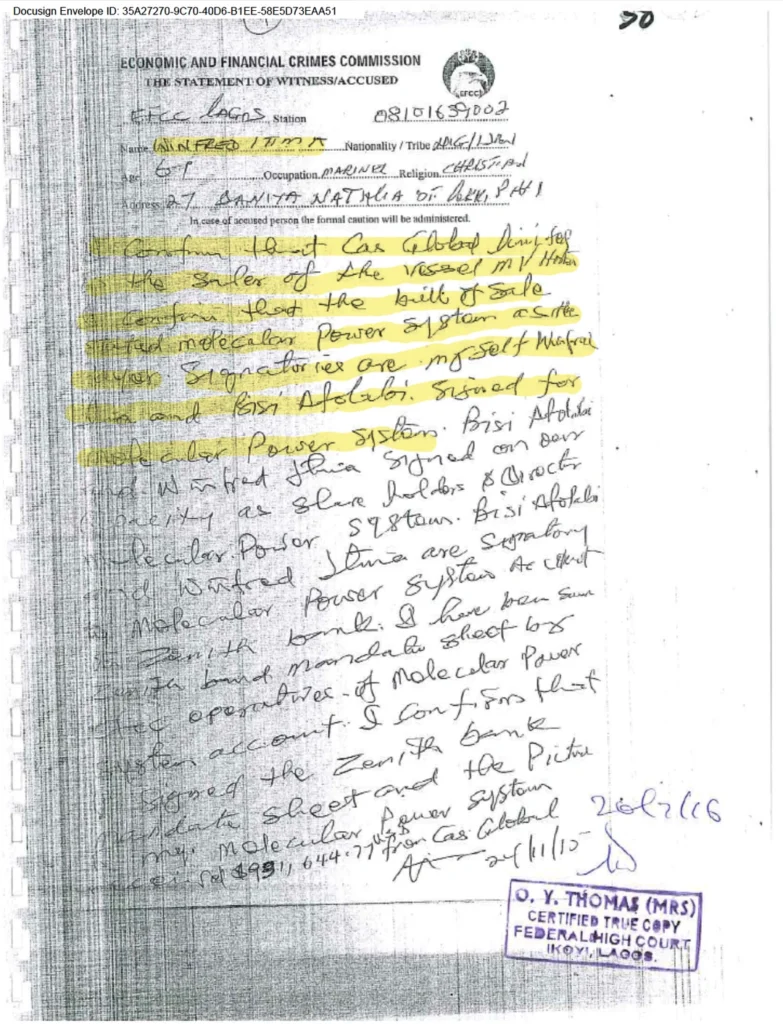 Docusign Envelope ID: 35A27270-9C70-40D6-B1EE-58E5D73EAA51
50
ECONOMIC AND FINANCIAL CRIMES COMMISSION
THE STATEMENT OF WITNESS/ACCUSED
EFCC
EFCC LAGOS Station 08101639002
Name WINFRED ITIMA Nationality / Tribe
Age Occupation MARINE Religion CHRISTIAN
Address 27,
In case of accused person the formal caution will be administered.
Confirm that Cas Global
the saler of the vessel MV
Confirm that the bill of Sale
molecular Power System as the
Signatories are myself
and Bisi Afolabi. Signed for
molecular Power System. Bisi Afolabi
Winfred Itima signed on our
as share holders & Director
Molecular Power System. Bisi Afolabi
Winfred Itima are signatory
Molecular Power System Account
Zenith bank. I have been
Zenith band mandate sheet by
operatives of Molecular Power
System account. I confirm that
signed the Zenith bank
mandate sheet and the Picture
my. Molecular Power System
from Cas Global
24/11/15
O. Y. THOMAS (MRS)
CERTIFIED TRUE COPY
FEDERAL HIGH COURT
IKOYI, LAGOS.